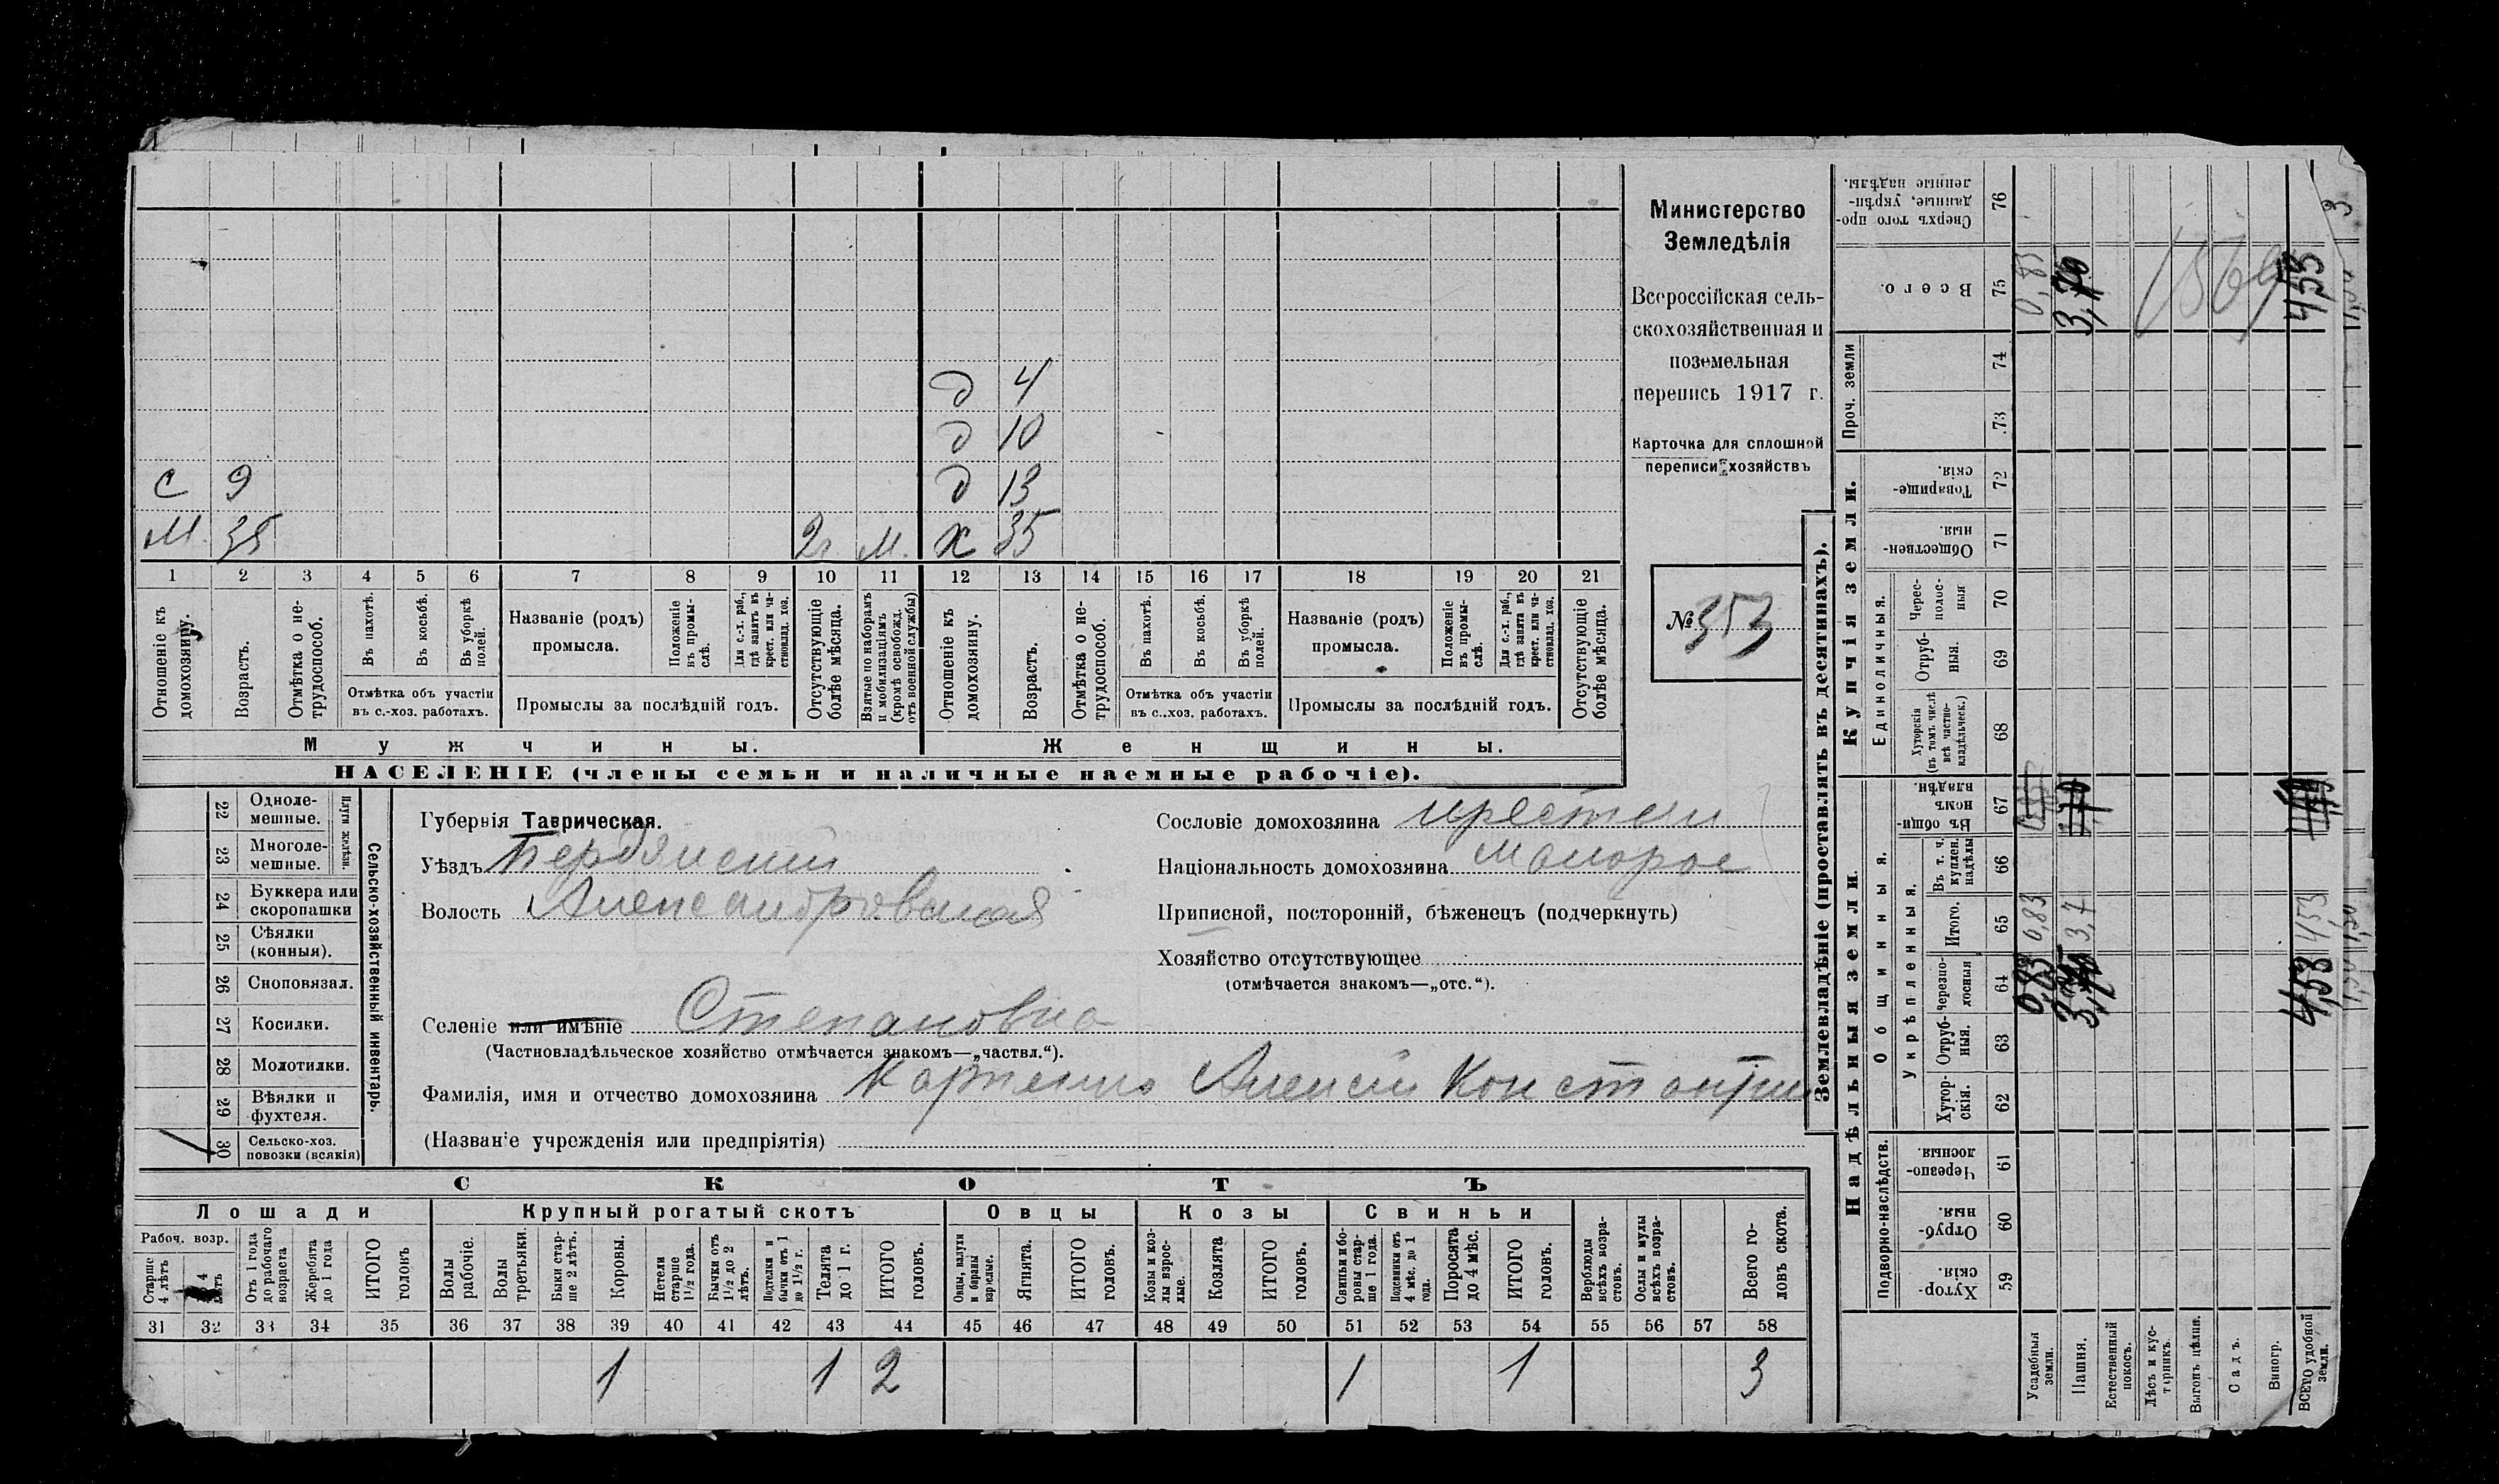 Министерство
Земледѣлія
Всероссійская сель-
скохозяйственная и
поземельная
перепись 1917 г.
Карточка для сплошной
переписи хозяйствъ
№ 353
д 4
д 10
С 9 д 13
М 35 2г. М. х 35
1 2 3 4 5 6 7 8 9 10 11 12 13 14 15 16 17 18 19 20 21
Отношеніе къ домохозяину.
Возрастъ.
Отмѣтка о не-трудоспособ.
Въ пахотѣ.
Въ косьбѣ.
Въ уборкѣ полей.
Отмѣтка объ участіи
въ с.-хоз. работахъ.
Названіе (родъ)
промысла.
Положеніе въ промы-слѣ.
Для с.-х. раб., гдѣ занятъ въ крест. или ча-стновлад. хоз.
Промыслы за послѣдній годъ.
Отсутствующіе болѣе мѣсяца.
Взятые по наборамъ и мобилизаціямъ (кромѣ освобожд. отъ военной службы)
Отношеніе къ домохозяину.
Возрастъ.
Отмѣтка о не-трудоспособ.
Въ пахотѣ.
Въ косьбѣ.
Въ уборкѣ полей.
Отмѣтка объ участіи
въ с.-хоз. работахъ.
Названіе (родъ)
промысла.
Положеніе въ промы-слѣ.
Для с.-х. раб., гдѣ занята въ крест. или ча-стновлад. хоз.
Промыслы за послѣдній годъ.
Отсутствующіе болѣе мѣсяца.
Мужчины. Женщины.
НАСЕЛЕНІЕ (члены семьи и наличные наемные рабочіе).
Сельско-хозяйственный инвентарь.
Плуги желѣзн.
22 Одноле-мешные.
23 Многоле-мешные.
24 Буккера или скоропашки
25 Сѣялки (конныя).
26 Сноповязал.
27 Косилки.
28 Молотилки.
29 Вѣялки и фухтеля.
30 Сельско-хоз. повозки (всякія)
Губернія Таврическая.
Уѣздъ Бердянскій
Волость Александровская
Селеніе или имѣніе Степановка
(Частновладѣльческое хозяйство отмѣчается знакомъ—„частвл.“).
Фамилія, имя и отчество домохозяина Карпенко Алексей Константин
(Названіе учрежденія или предпріятія)
Сословіе домохозяина крестьян
Національность домохозяина малорос
Приписной, посторонній, бѣженецъ (подчеркнуть)
Хозяйство отсутствующее
(отмѣчается знакомъ—„отс.“).
СКОТЪ
Лошади Крупный рогатый скотъ Овцы Козы Свиньи
Рабоч. возр.
Старше 4 лѣтъ
4 лѣтъ
Отъ 1 года до рабочаго возраста
Жеребята до 1 года
ИТОГО головъ
Волы рабочіе.
Волы третьяки.
Быки стар-ше 2 лѣтъ.
Коровы.
Нетели старше 1½ года.
Бычки отъ 1½ до 2 лѣтъ.
Подтелки и бычки отъ 1 до 1½ г.
Телята до 1 г.
ИТОГО головъ.
Овцы, валухи и бараны взрослые.
Ягнята.
ИТОГО головъ.
Козы и коз-лы взрос-лые.
Козлята
ИТОГО головъ.
Свиньи и бо-ровы стар-ше 1 года.
Подсвинки отъ 4 мѣс. до 1 года.
Поросята до 4 мѣс.
ИТОГО головъ.
Верблюды всѣхъ возра-стовъ.
Ослы и мулы всѣхъ возра-стовъ.
Всего го-ловъ скота.
31 32 33 34 35 36 37 38 39 40 41 42 43 44 45 46 47 48 49 50 51 52 53 54 55 56 57 58
1 1 2 1 1 3
Землевладѣніе (проставлять въ десятинахъ).
Надѣльныя земли.
Купчія земли.
Проч. земли
Подворно-наслѣдств.
Общинныя.
Укрѣпленныя.
Единоличныя.
Хутор-скія. 59
Отруб-ныя. 60
Черезпо-лосныя 61
Хутор-скія. 62
Отруб-ныя. 63
Черезпо-лосныя 64
Итого. 65
Въ т. ч. куплен. надѣлы 66
Въ общи-номъ владѣн. 67
Хуторскія (въ томъ числѣ всѣ частно-владѣльческ.) 68
Отруб-ныя. 69
Черес-полос-ныя 70
Обществен-ныя. 71
Товарище-скія. 72
73
74
Всего. 75
Сверхъ того про-данные, укрѣп-ленные надѣлы. 76
Усадебныя земли. 0,83 0,83 0,83
Пашня. 3,70 3,7 3,70
Естественный покосъ.
Лѣсъ и кус-тарникъ.
Выгонъ цѣлин.
Садъ.
Виногр.
ВСЕГО удобной земли. 4,53 453 453
1569
3